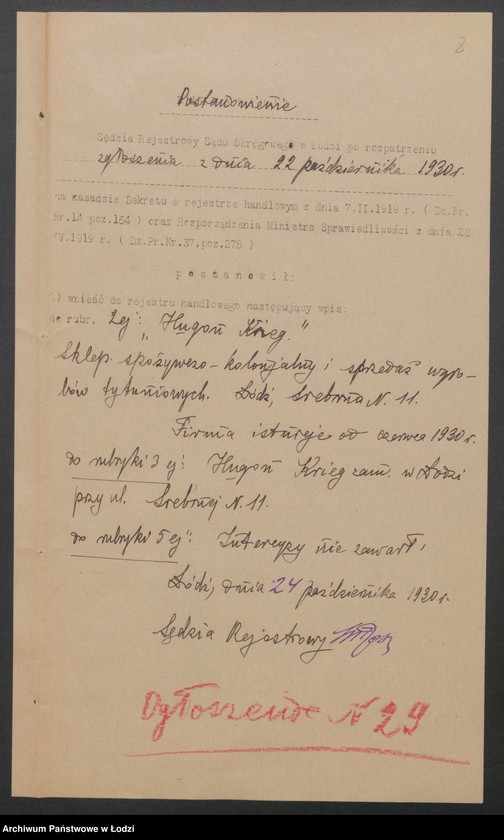 8
Postanowienie
Sędzia Rejestrowy Sądu Okręgowego w Łodzi po rozpatrzeniu
zgłoszenia z dnia 22 października 1930r.
na zasadzie Dekretu o rejestrze handlowym z dnia 7.II.1919 r. ( Dz.Pr.
Nr.14 poz.164 ) oraz Rozporządzenia Ministra Sprawiedliwości z dnia 22.
IV.1919 r. ( Dz.Pr.Nr.37,poz.278 )
p o s t a n o w i ł:
1) wnieść do rejestru handlowego następujący wpis:
do rubr. 2ej: „Hugon Krieg."
Sklep spożywczo-kolonjalny i sprzedaż wyro-
bów tytuniowych. Łódź, Srebrna N. 11.
Firma istnieje od czerwca 1930r.
do rubryki 3 ej: Hugon Krieg zam. w Łodzi
przy ul. Srebrnej N. 11.
do rubryki 5 ej: Intercyzy nie zawarł.
Łódź, dnia 24 października 1930 r.
Sędzia Rejestrowy
Ogłoszenie N 29
Archiwum Państwowe w Łodzi